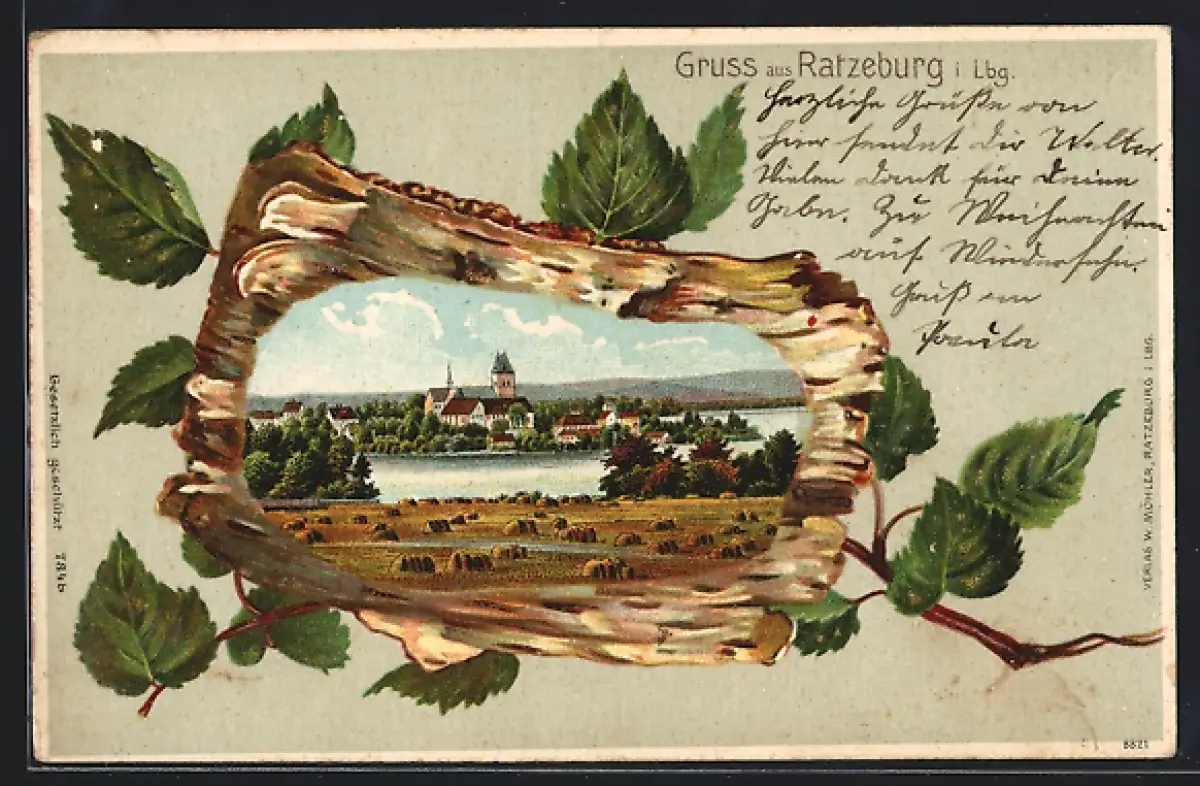 Gruss aus Ratzeburg i Lbg.
Herzliche Grüße von
hier sendet dir Walter.
Vielen Dank für Deine
Gabe. Zu Weihnachten
auf Wiedersehn.
Gruß
Paula
Gesetzlich geschützt 784b
VERLAG W. MÖHLER, RATZEBURG i LBG.
8821